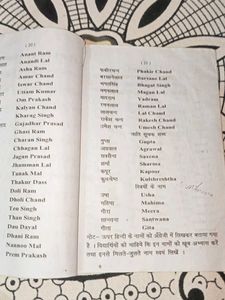 (20)
Anant Ram
Anandi Lal
Asha Ram
Amar Chand
Iswar Chand
Uttam Kumar
Om Prakash
Kalyan Chand
Kharag Singh
Gajadhar Prasad
Ghasi Ram
Charan Singh
Chhagan Lal
Jagan Prasad
Jhamman Lal
Tanak Mal
Thakur Dass
Doli Ram
Dholi Chand
Teu Singh
Than Singh
Dau Dayal
Dhani Ram
Nannoo Mal
Prem Prakash
फकीरचन्द Phakir Chand
Bhagat Singh
मगनलाल Magan Lal
Yadram
रमनलाल Raman Lal
Lal Chand
राकेश चन्द Rakesh Chand
उमेश चन्द Umesh Chand
जाति सूचक शब्द
गुप्ता Gupta
अग्रवाल Agrawal
सक्सैना Saxena
शर्मा Sharma
कपूर Kapoor
कुलश्रेष्ठ Kulshreshtha
स्त्रियों के नाम
उषा Usha
महिमा Mahima
मीरा Meera
सान्त्वना Santwana
गीता Gita
नोट—ऊपर हिन्दी के नामों को अँग्रेजी में लिखकर बताया गया
है । विद्यार्थियों को चाहिये कि इन नामों को खूब अभ्यास करें
तथा इनसे मिलते-जुलते नाम स्वयं लिखें ।